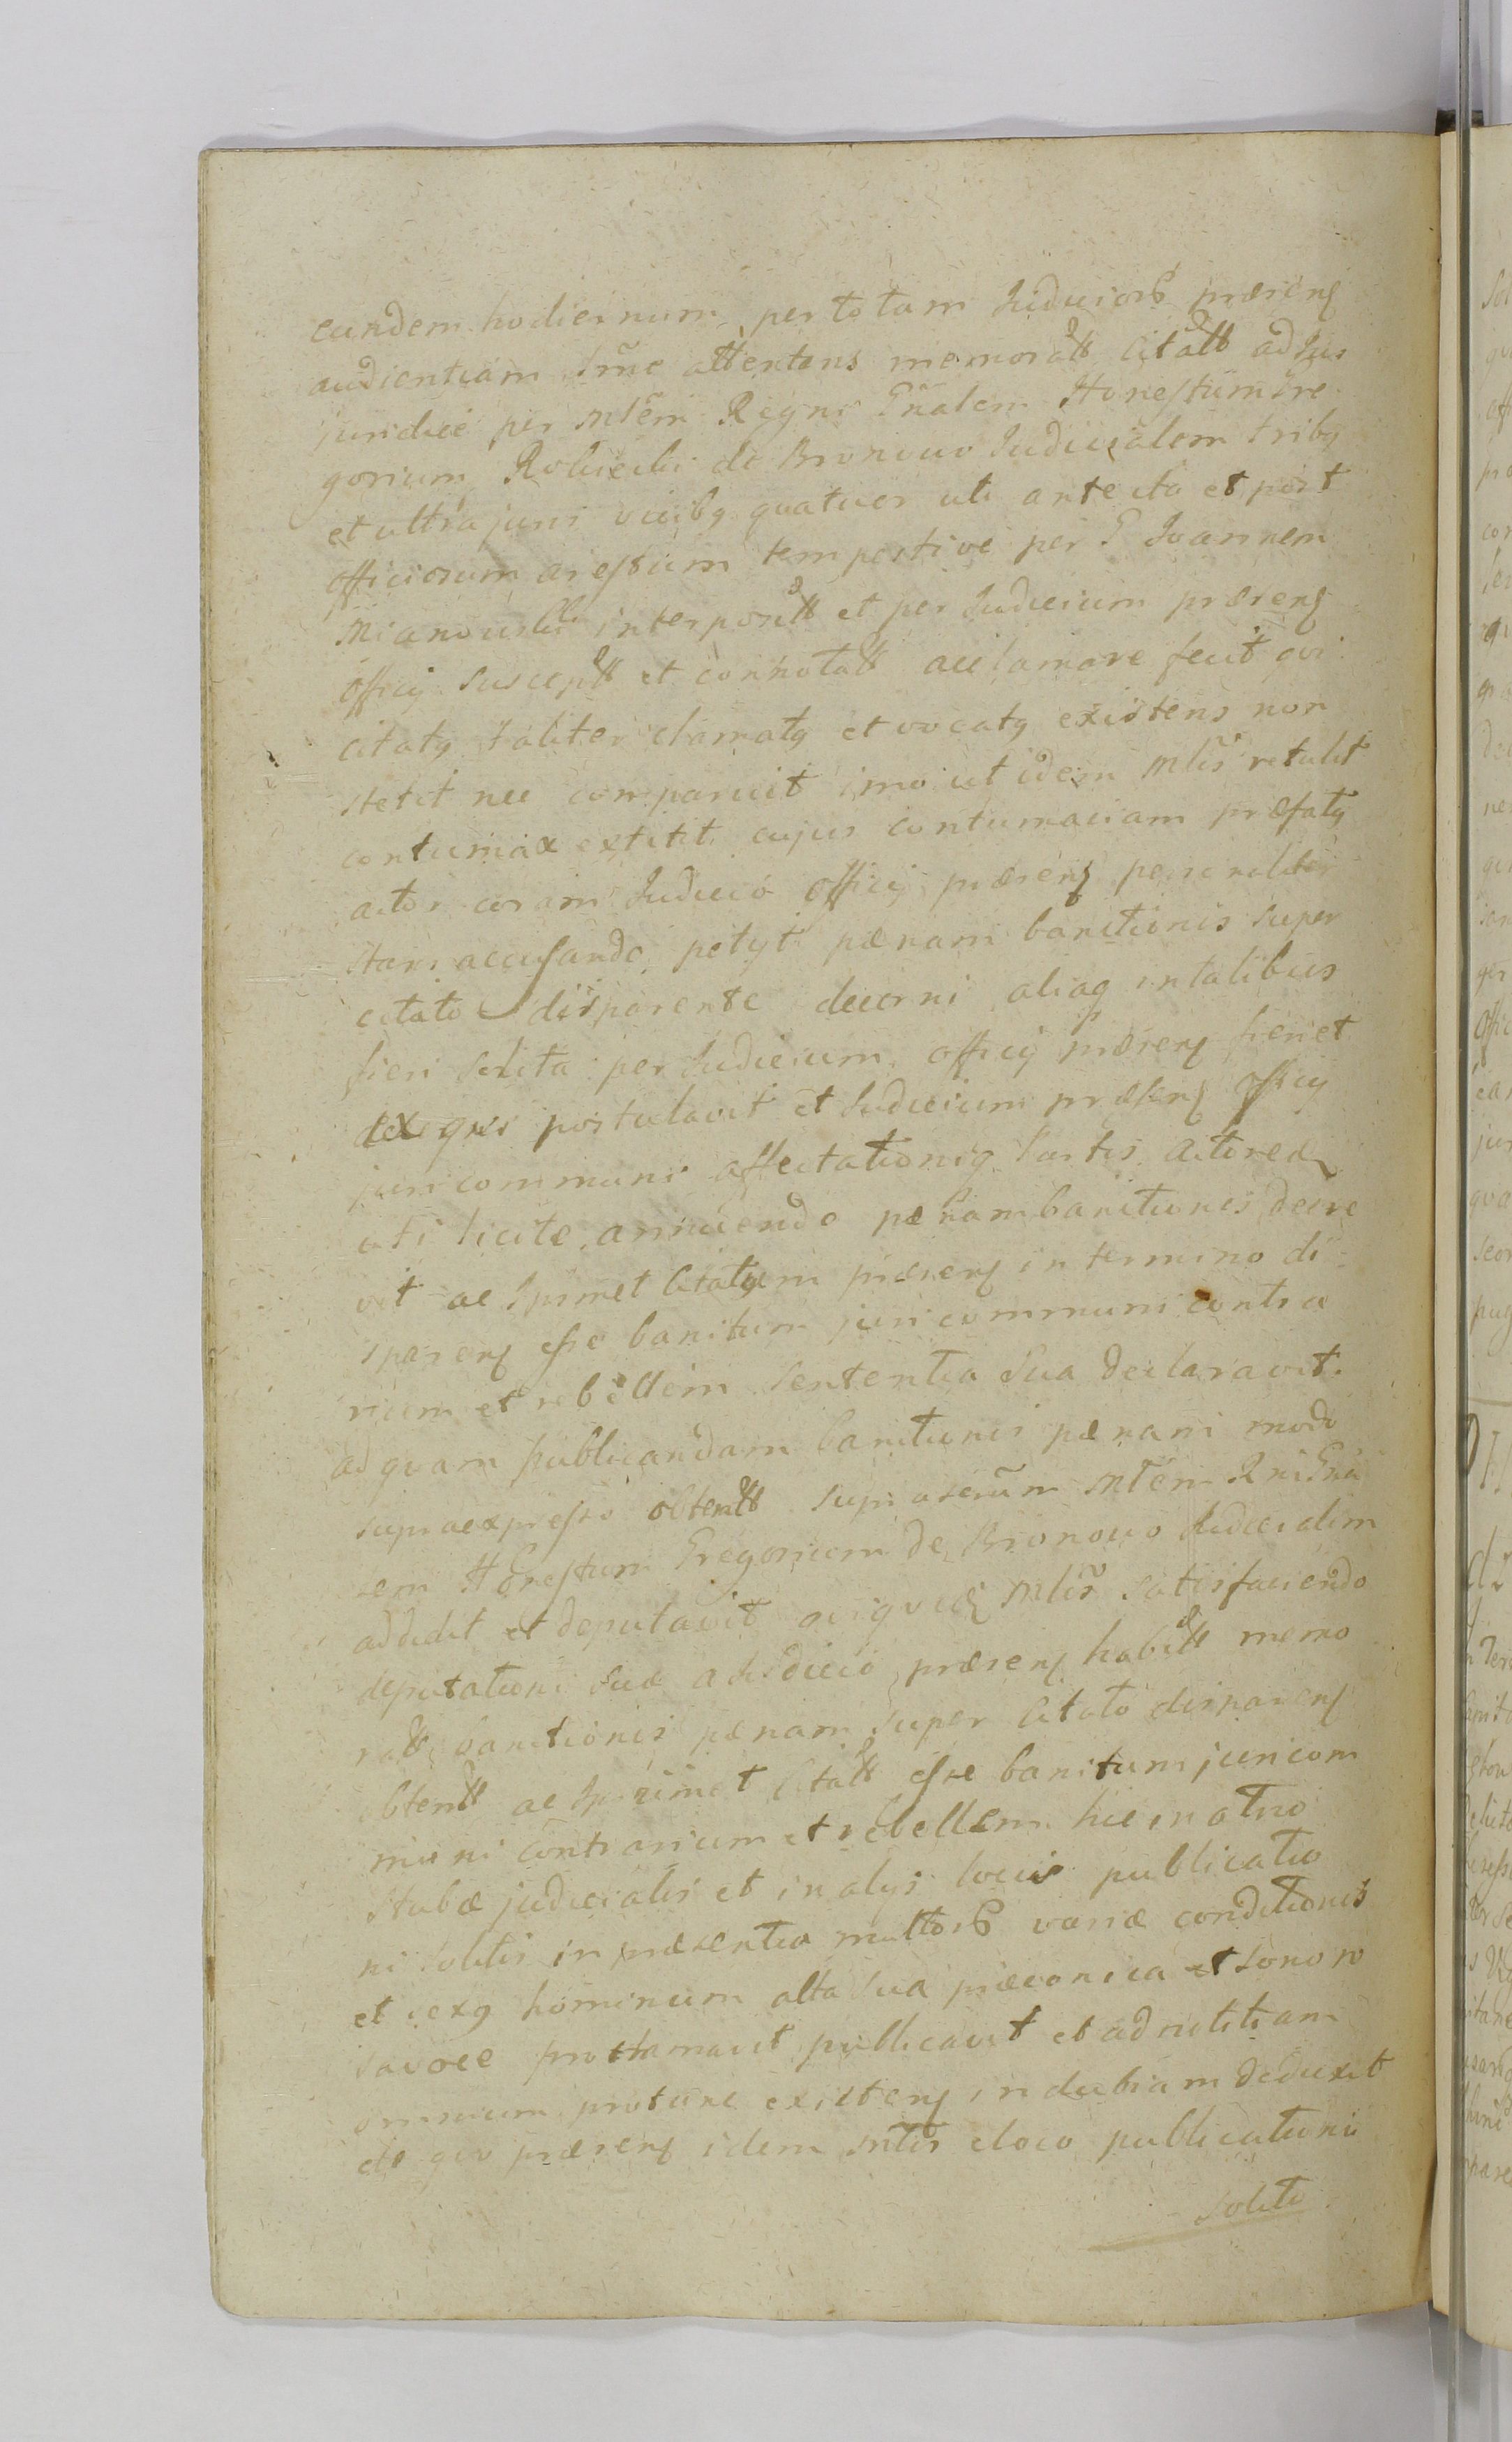 eundem hodiernum per totam Judiciorꝫ præsenꝭ
audientiam Trme attentans memoratt Citatt ad Jus
juridice per Mlem Regni Gñalem Honestum Gre
gorium Rokicki de Bronowo Judicialem tribꝯ
et ultra juri vicibꝯ quatuor uti ante ita et post
officiosum arestum tempestive per G Joannem
Mianowski interpositt et per Judicium præsenꝭ
Officij susceptt et connotatt acclamare fecit qui
citatꝯ taliter clamatꝯ et vocatꝯ existens non
stetit nec comparuit imo ut idem Mlis retulit
contumax extitit cujus contumaciam præfatꝯ
actor coram Judicio Officij præsenꝭ personaliter
stans accusando petyt pænam banitionis super
citato disparente decerni aliaqꝫ in talibus
fieri solita per Judicium officij præsenꝭ fieri et
exequi postulavit et Judicium præsenꝭ Officij
juri communi affectationiqꝫ Partis Actoreæ
uti licitæ annuendo pænam banitionis decre
vit ac ipsimet Citatum præsenꝭ in termino di
sparenꝭ esse banitum juri communi contra
rium et rebellem sententia sua declaravit.
ad quam publicandam banitionis pænam modo
supraexpresso obtentt supra scrûm Mlem Rni Gna
lem Honestum Gregorium de Bronowo Judicialem
addidit et deputavit qui quidꝫ Mlis satisfaciendo
deputationi suæ a Judicio præsenꝭ habitt memo
ratt banitionis pænam super Citato disparenꝭ
obtentt ac ipsimet Citatt esse banitum juri com
muni contrarium et rebellem hic in atrio
stubæ judicialis et in alijs locis publicatio
ni solitis in præsentia multorꝫ variæ conditionis
et sexꝯ hominum alta sua præconica et sonoro
sa voce proclamavit publicavit et ad notitiam
omnium protunc existenꝭ indubiam deduxit
de quo præsenꝭ idem Mlis eloco publicationis
solito